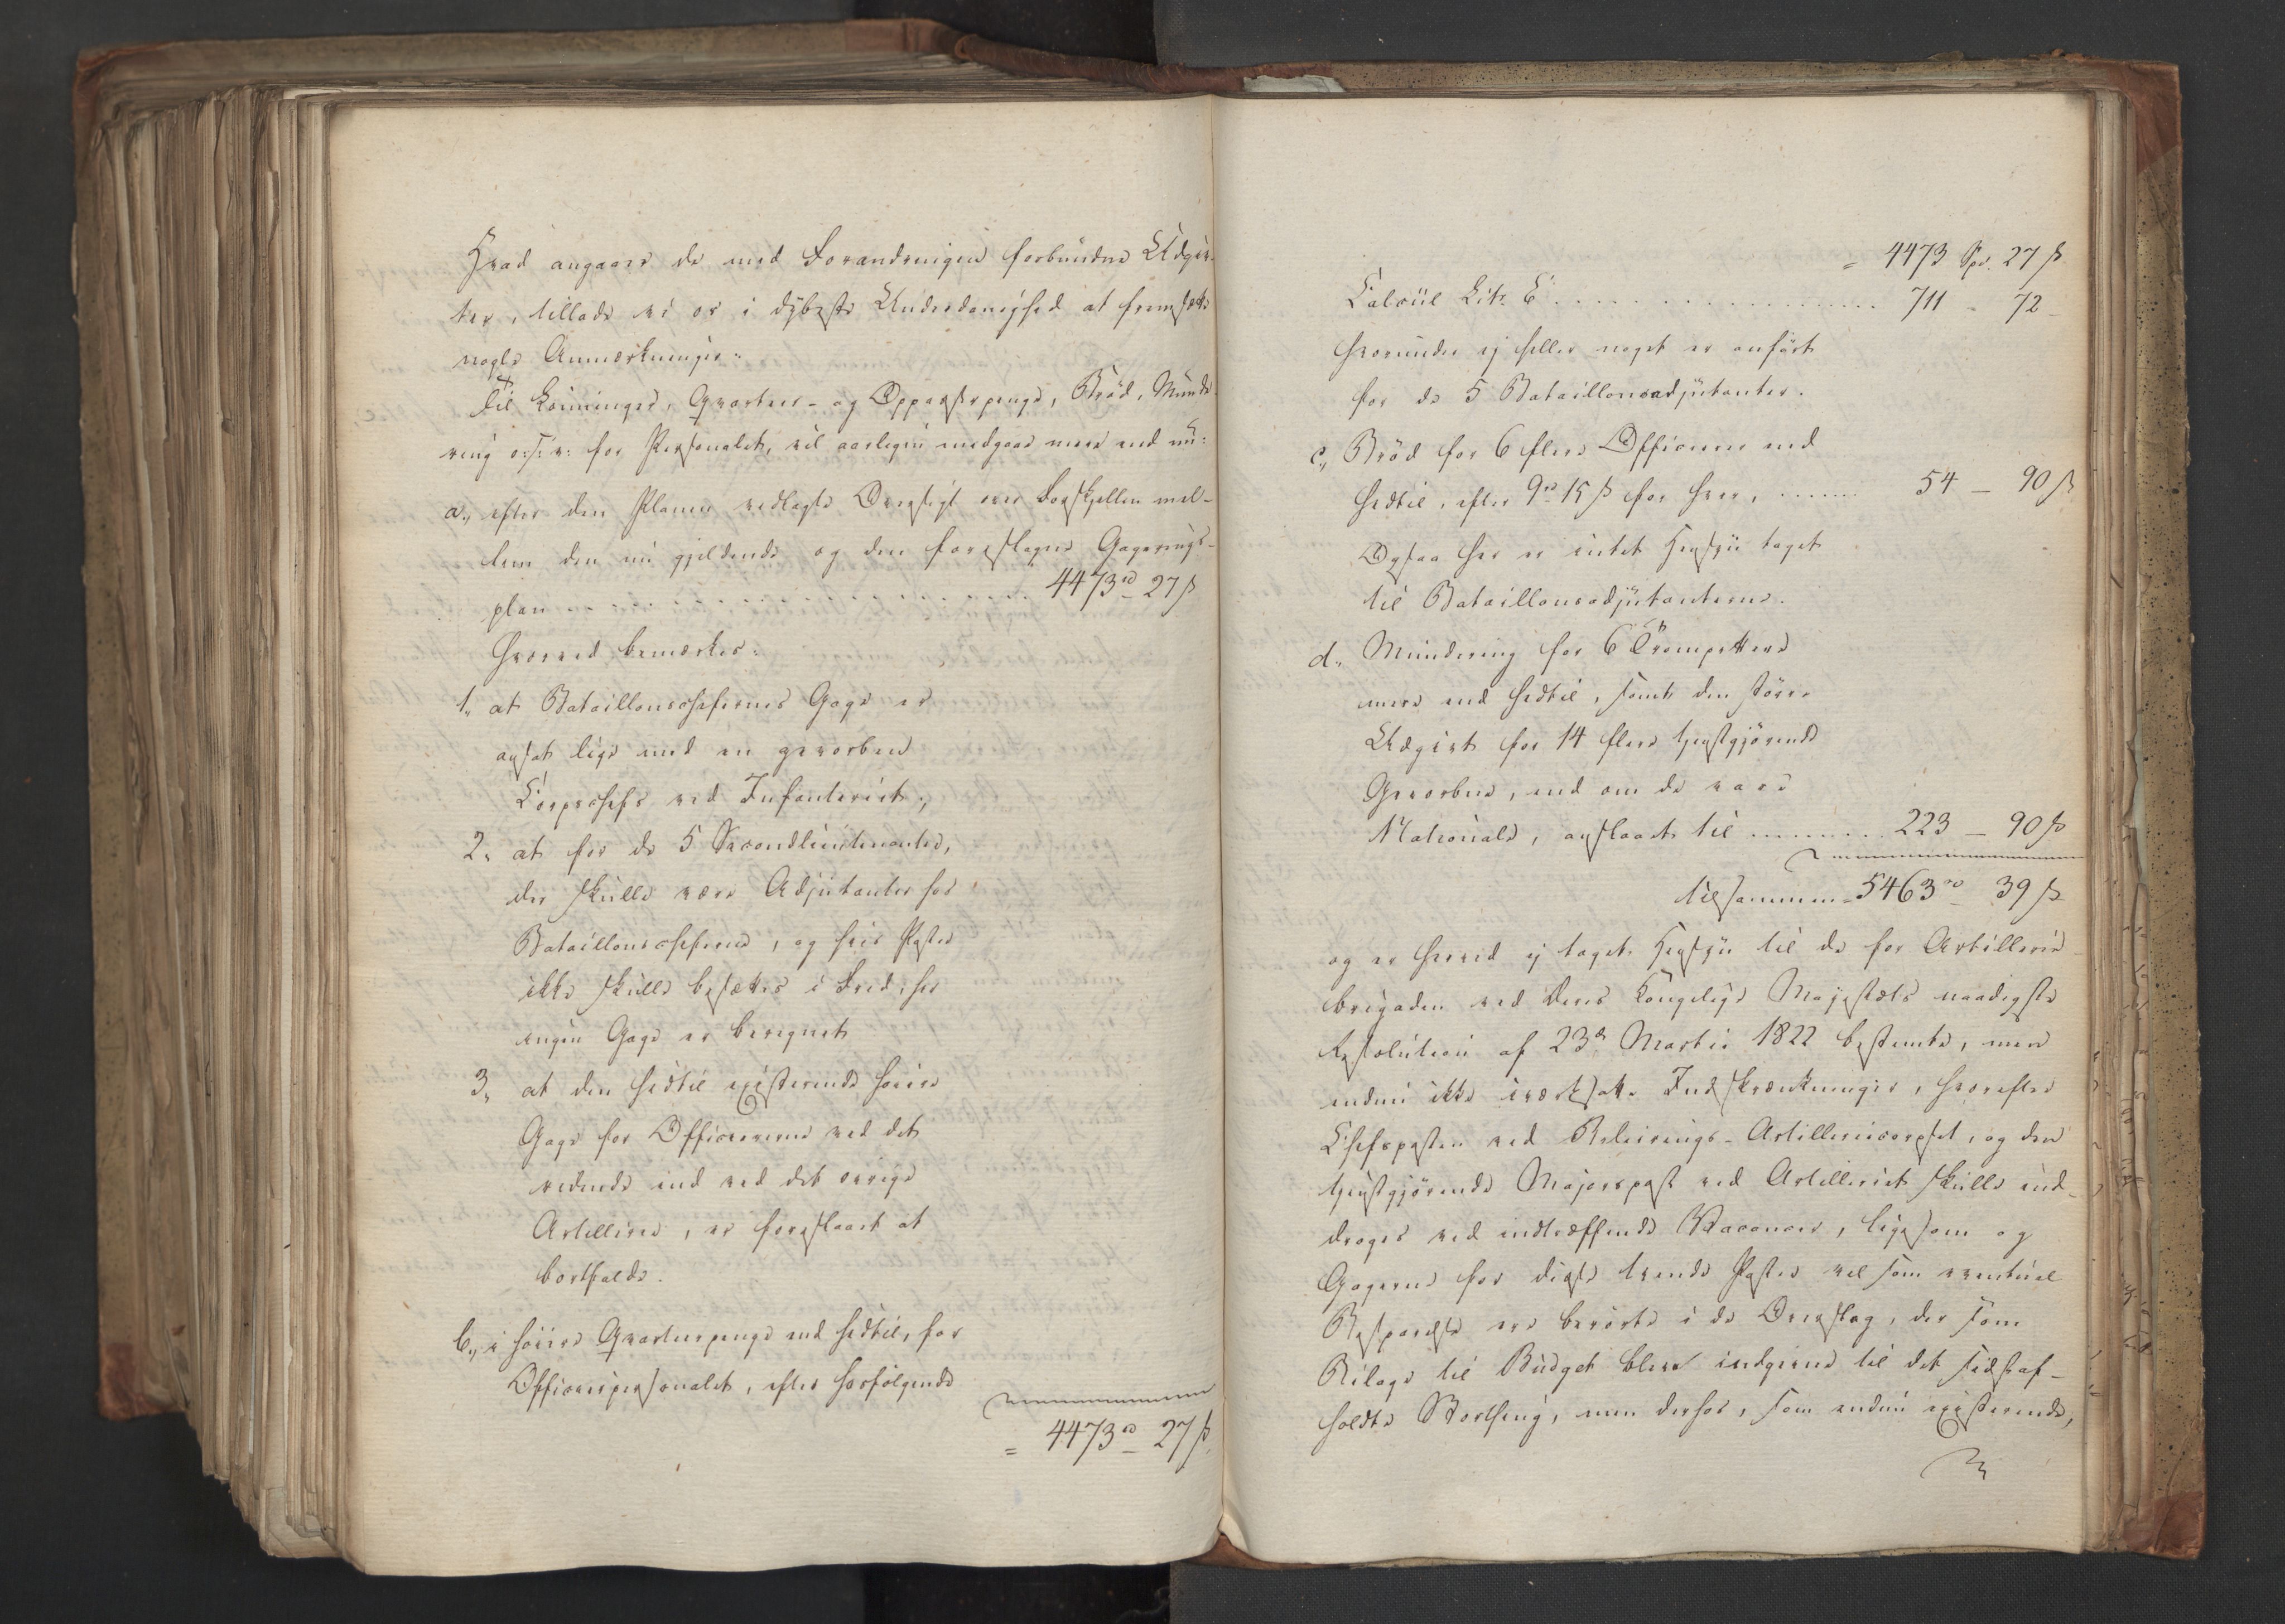 Hvad angaaer de med Forandringen forbundne Udgif-
ter, tillade vi os i dybeste Underdanighed at fremsætte
nogle Anmærkninger:
Til Lønninger, Qvarteer- og Oppasserpenge, Brød, Munde-
ring o: s: v: for Personalet, vil aarligen medgaae mere end nu:
a., efter den Planen vedlagte Oversigt over Forskjellen mel-
lem den nu gjeldende og den foreslagne Gagerings-
plan . . . . . . . . . . . . . . . . 4473 rd 27 ß
Hvorved bemærkes:
1., at Bataillonschefernes Gage er
ansat lige med en gevorben
Corpschefs ved Infanteriet;
2., at for de 5 Secondlieutenanter,
der skulle være Adjutanter hos
Bataillonscheferne, og hvis Poster
ikke skulle besættes i Fred, her
ingen Gage er beregnet
3., at den hidtil existerende høiere
Gage for Officererne ved det
ridende end ved det øvrige
Artillerie, er foreslaaet at
bortfalde.
b., i høiere Qvarteerpenge end hidtil, for
Officierspersonalet, efter hosfølgende
= 4473 rd 27 ß.
= 4473 Spd. 27 ß
Calcül Litr. E . . . . . . . . . . . . . 711 - 72 -
hvorunder ej heller noget er anført
for de 5 Bataillonsadjutanter.
c., Brød for 6 flere Officerer end
hidtil, efter 9 rd 15 ß for hver, . . . . . . 54 - 90 ß
Ogsaa her er intet Hensyn taget
til Bataillonsadjutanterne.
d., Mundering for 6 Trompettere
mere end hidtil, samt den større
Udgivt for 14 flere tjenstgjørende
Gevorbne, end om de vare
Nationale, anslaaet til . . . . . . . . . 223 - 90 ß
tilsammen = 5463 rd 39 ß
og er herved ej taget Hensyn til de for Artillerie-
brigaden ved Deres Kongelige Majestæts naadigste
Resolution af 23de Martii 1822 bestemte, men
endnu ikke iværksatte Indskrænkninger, hvorefter
Chefsposten ved Raleirings-Artilleriecorpset, og den
tjenstgjørende Majorspost ved Artilleriet skulle ind-
drages ved indtræffende Vacancer, ligesom og
Gagerne for disse tvende Poster vel som eventuel
Besparelse ere berørte i de Overslag, der som
Bilage til Budget bleve indgivne til det sidstaf-
holdte Storthing, men derhos, som endnu existerende,